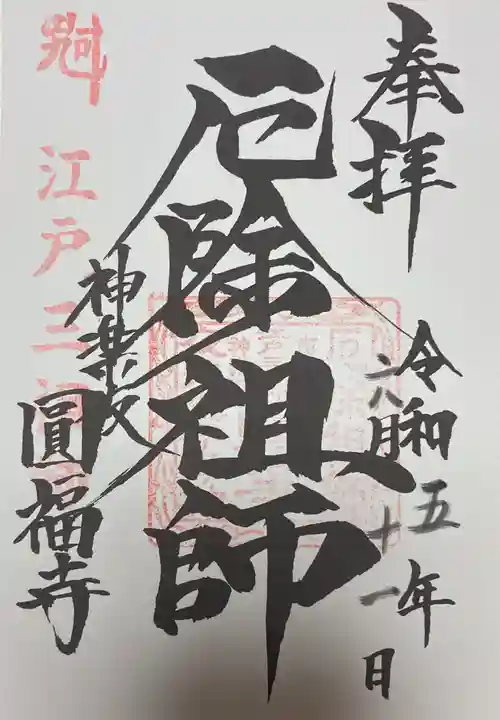 奉拝
令和五年
六月十一日
厄除祖師
神楽坂
圓福寺
江戸三